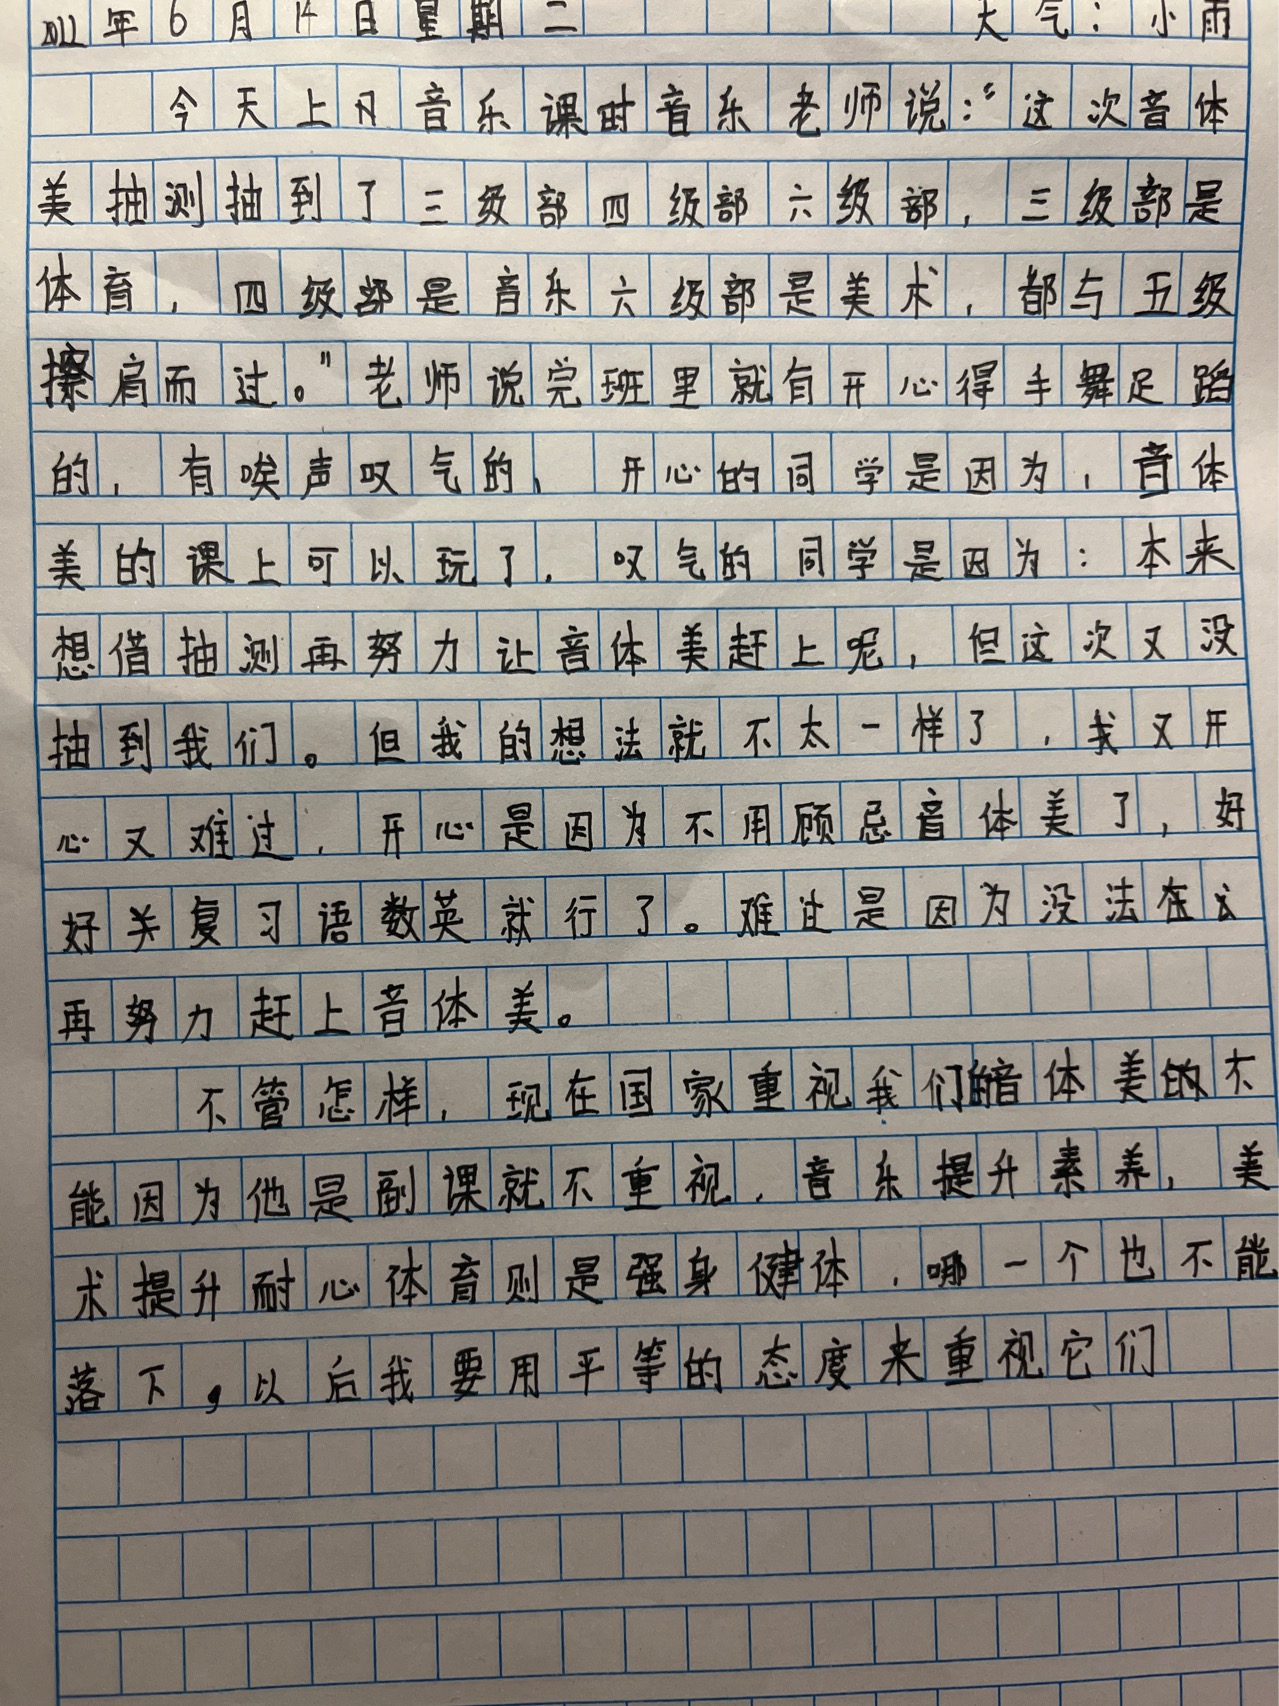 2022年6月14日星期二 天气：小雨
今天上月音乐课时音乐老师说：“这次音体
美抽测抽到了三级部四级部六级部，三级部是
体育，四级部是音乐六级部是美术，都与五级
擦肩而过。”老师说完班里就有开心得手舞足蹈
的，有唉声叹气的，开心的同学是因为，音体
美的课上可以玩了，叹气的同学是因为：本来
想借抽测再努力让音体美赶上呢，但这次又没
抽到我们。但我的想法就不太一样了，我又开
心又难过，开心是因为不用顾忌音体美了，好
好关复习语数英就行了。难过是因为没法在
再努力赶上音体美。
不管怎样，现在国家重视我们的音体美的不
能因为他是副课就不重视，音乐提升素养，美
术提升耐心体育则是强身健体，哪一个也不能
落下，以后我要用平等的态度来重视它们